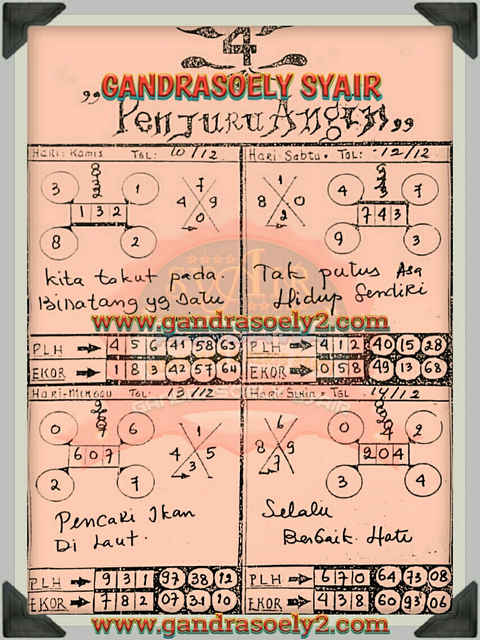 4
GANDRASOELY SYAIR
"Penjuru Angin"
Hari: Kamis TGL: 10/12
3 1
1 3 2
8 2
7
4 9
0
kita takut pada
Binatang yg Satu
www.gandrasoely2.com
PLH 4 5 6 41 58 63
EKOR 1 8 3 42 57 64
Hari Sabtu TGL: 12/12
4 7
7 4 3
9 3
1
8 0
2
Tak putus Asa
Hidup Sendiri
PLH 4 1 2 40 15 28
EKOR 0 5 8 49 13 68
Hari-Minggu TGL 13/12
0 6
6 0 7
2 7
1
4 5
3
Pencari Ikan
Di Laut.
PLH 9 3 1 97 38 12
EKOR 7 8 2 07 31 10
Hari-Senin TGL 14/12
0 2
2 0 4
3 4
6
8 9
7
Selalu
Berbaik Hati
PLH 6 7 0 64 73 08
EKOR 4 3 8 60 93 06
www.gandrasoely2.com